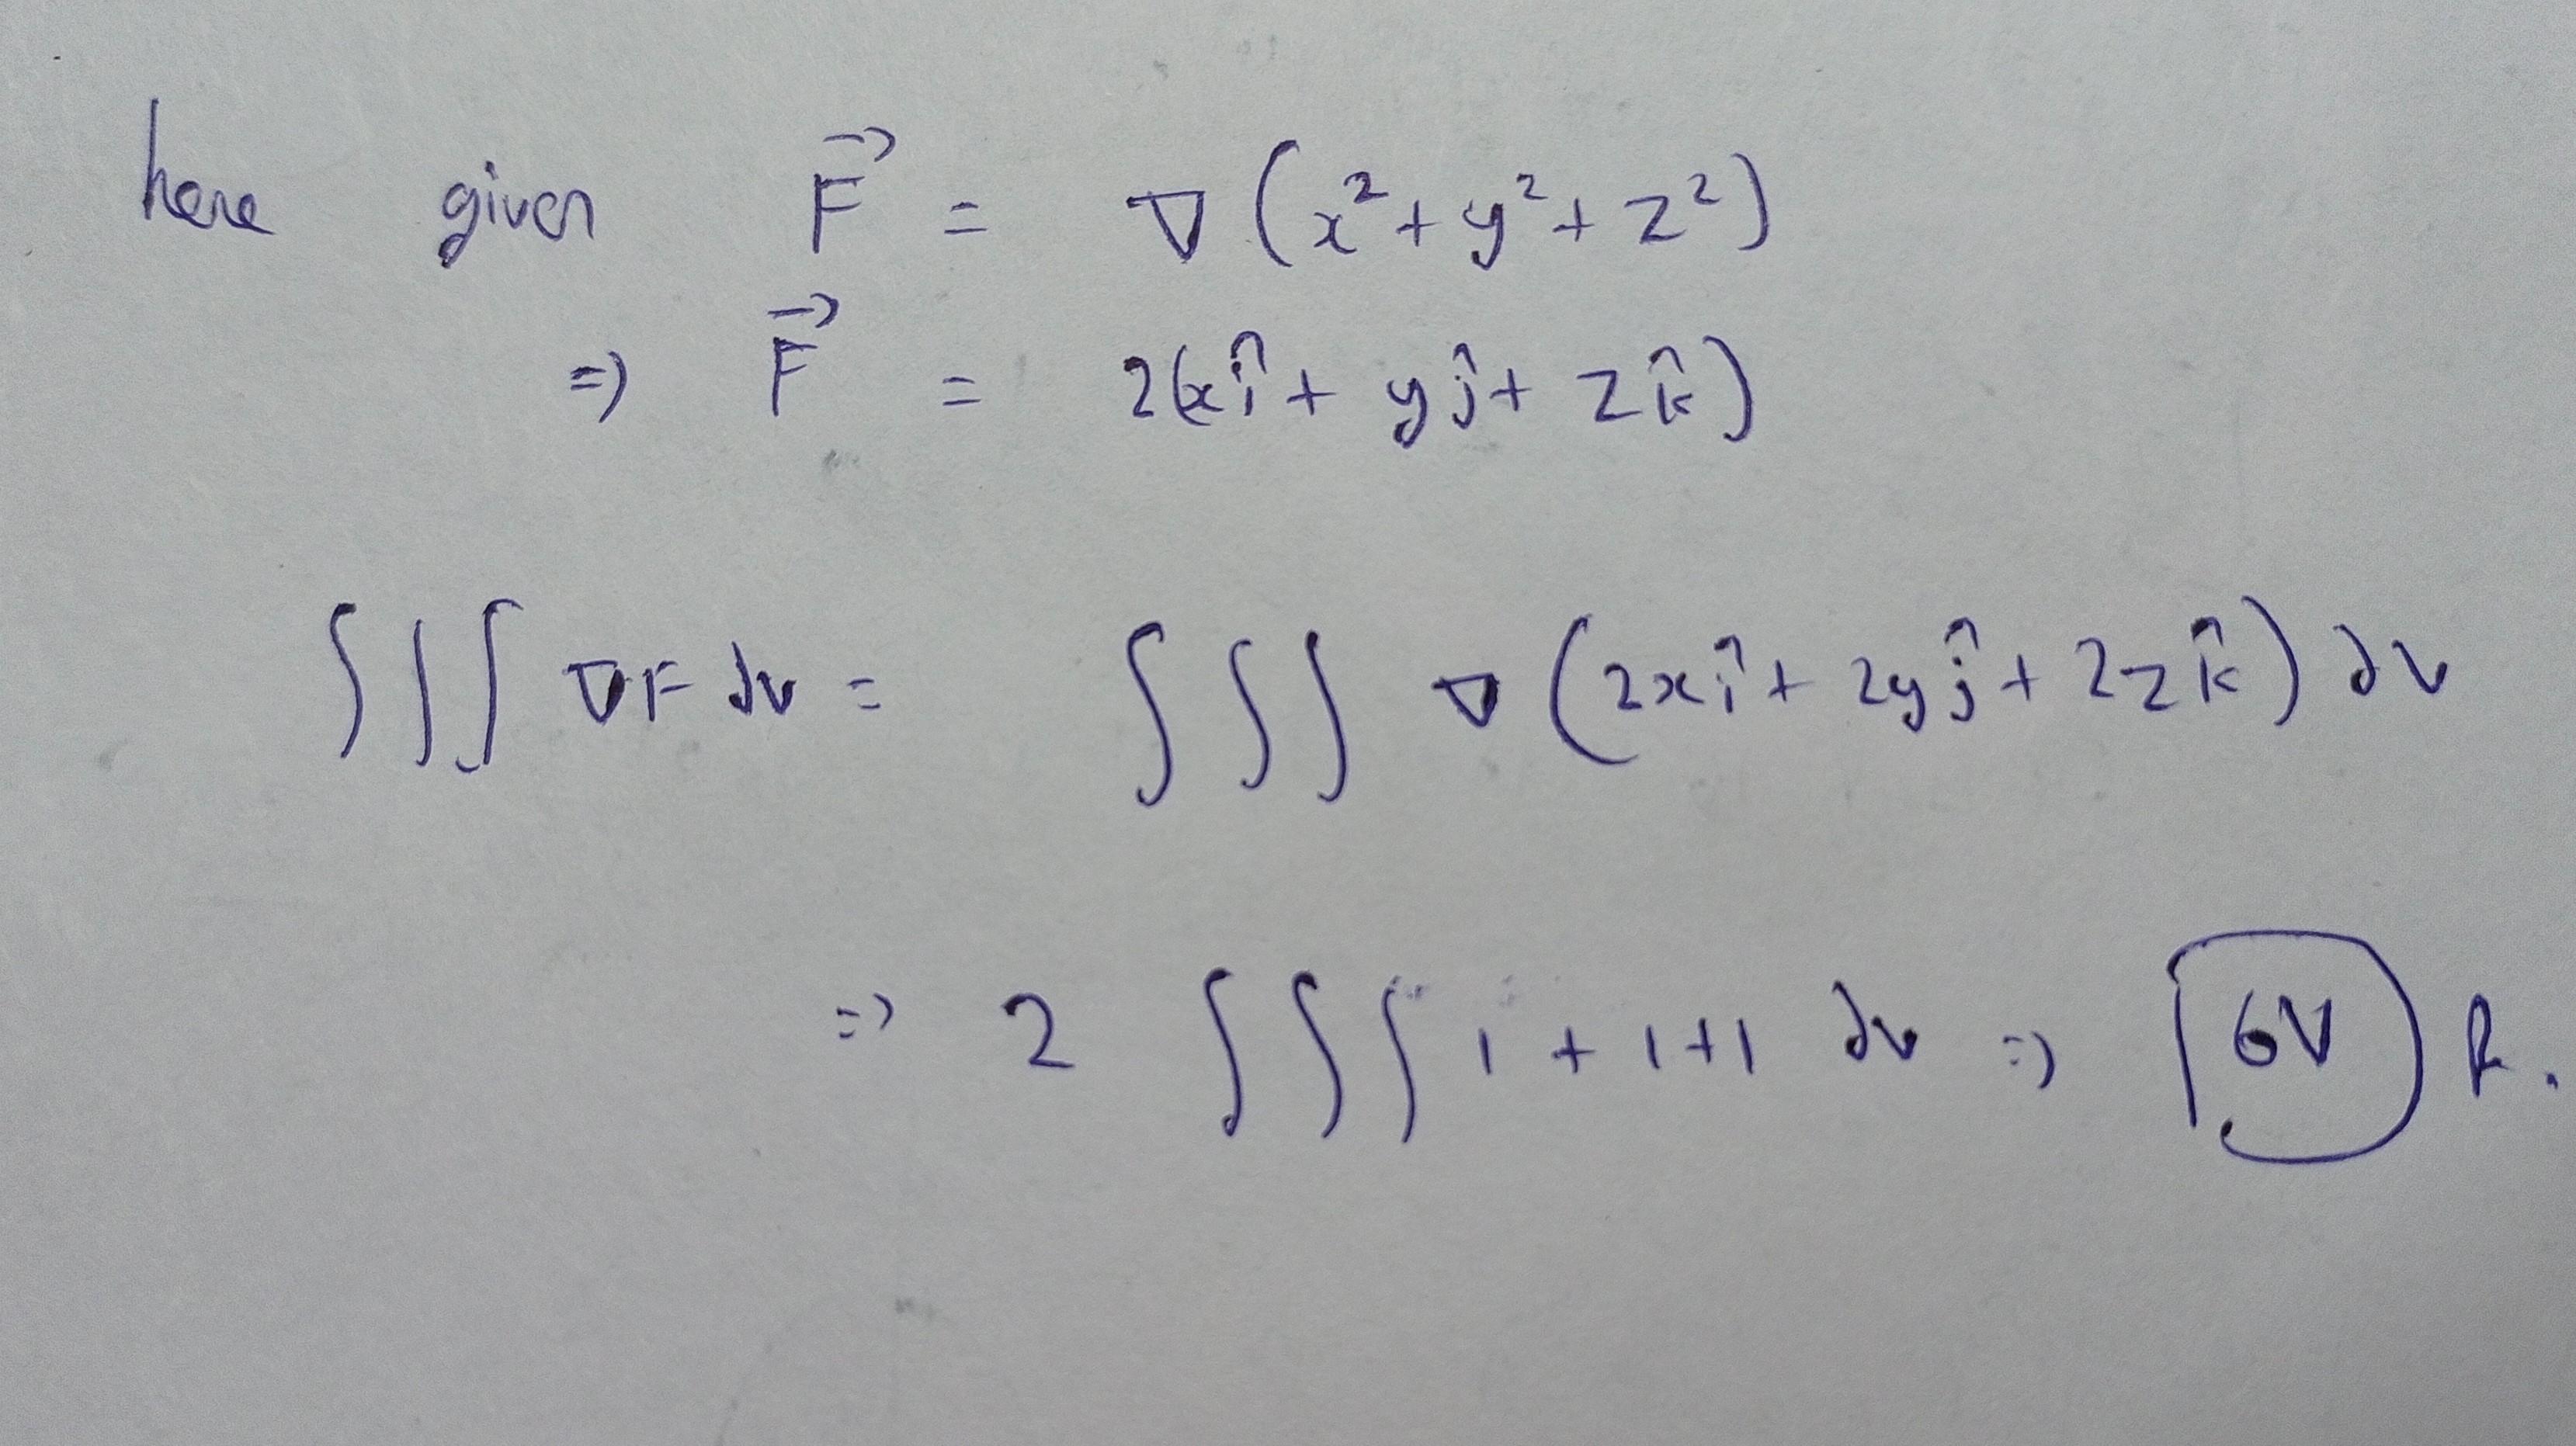 here given F⃗ = ∇(x²+y²+z²)
=> F⃗ = 2(xî + yĵ + zk̂)
∫∫∫ ∇F dv = ∫∫∫ ∇(2xî + 2yĵ + 2zk̂) dv
=> 2 ∫∫∫ 1 + 1+1 dv => 6V